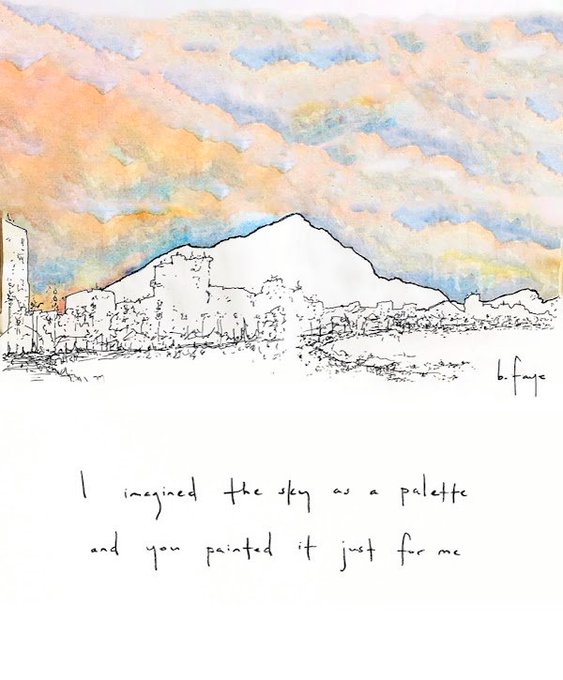 b. faye
I imagined the sky as a palette
and you painted it just for me